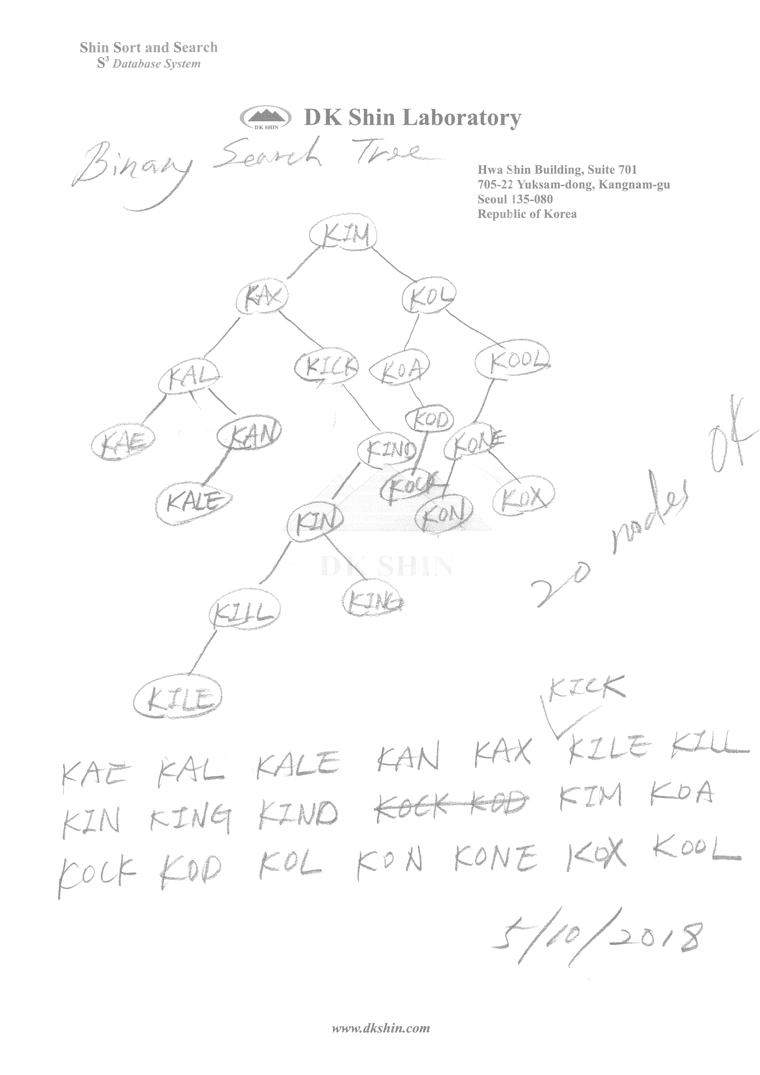 Shin Sort and Search
S³ Database System
DK SHIN
DK Shin Laboratory
Binary Search Tree
Hwa Shin Building, Suite 701
705-22 Yuksam-dong, Kangnam-gu
Seoul 135-080
Republic of Korea
KIM
KAX KOL
KAL KICK KOA KOOL
KAE KAN KIND KOD KONE
KALE KIN KOCK KON KOX
DK SHIN
KILL KING
KILE
20 nodes OK
KICK
KAE KAL KALE KAN KAX KILE KILL
KIN KING KIND KOCK KOD KIM KOA
KOCK KOD KOL KON KONE KOX KOOL
5/10/2018
www.dkshin.com